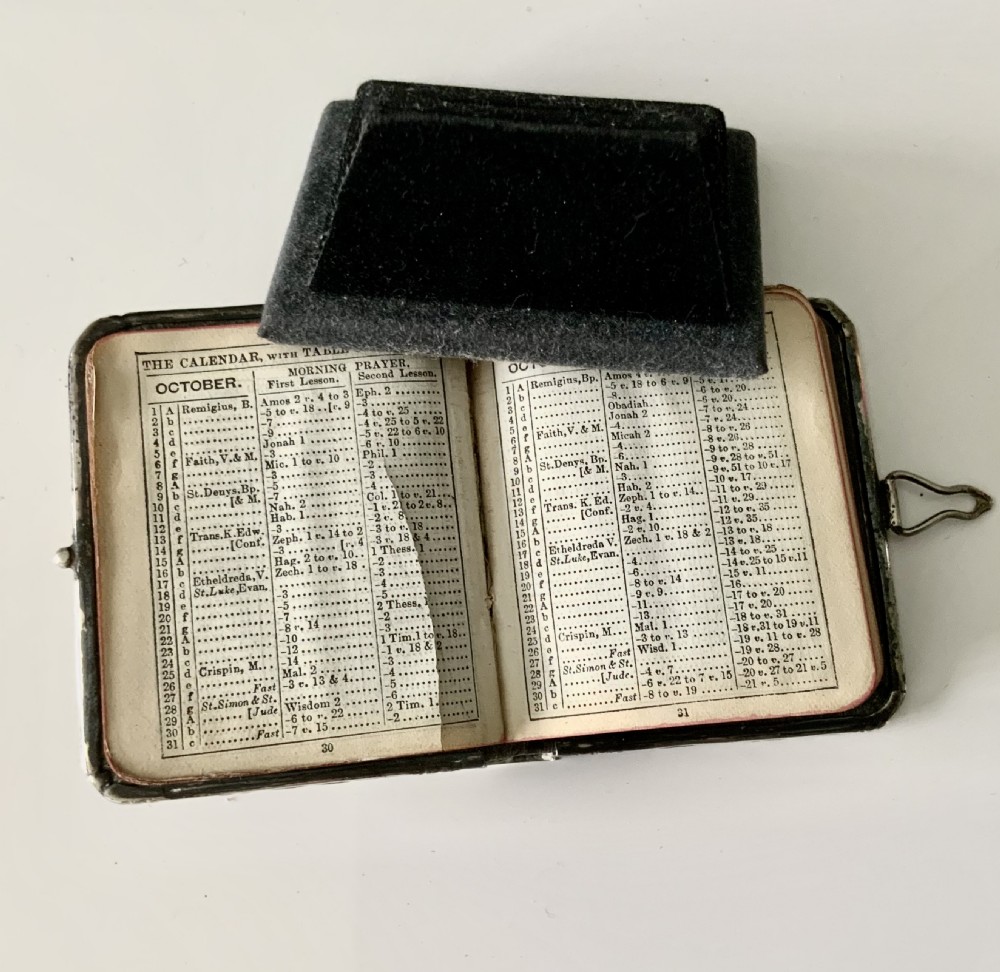 THE CALENDAR, WITH TABLE
OCTOBER.
MORNING PRAYER.
First Lesson. Second Lesson.
1 A Remigius, B. Amos 2 v. 4 to 3 Eph. 2
2 b -5 to v. 18 ..[v. 9 -3
3 c -7 -4 to v. 25
4 d -9 -4 v. 25 to 5 v. 22
5 e Jonah 1 -5 v. 22 to 6 v. 10
6 f Faith, V. & M. -3 -6 v. 10
7 g Mic. 1 to v. 10 Phil. 1
8 A -3 -2
9 b St. Denys, Bp. -5 -3
10 c [& M. -7 -4
11 d Nah. 2 Col. 1 to v. 21
12 e Hab. 1 -1 v. 21 to 2 v. 8
13 f Trans. K. Edw. -3 -2 v. 8
14 g [Conf. Zeph. 1 v. 14 to 2 -3 to v. 18
15 A -3 [v. 4 -3 v. 18 & 4
16 b Hag. 2 to v. 10 1 Thess. 1
17 c Etheldreda, V. Zech. 1 to v. 18 -2
18 d St. Luke, Evan. -3
19 e -3 -4
20 f -5 -5
21 g -7 2 Thess. 1
22 A -8 v. 14 -2
23 b -10 -3
24 c -12 1 Tim. 1 to v. 18
25 d Crispin, M. -14 -1 v. 18 & 2
26 e Mal. 2 -3
27 f Fast -3 v. 13 & 4 -4
28 g St. Simon & St. -5
29 A [Jude Wisdom 2 -6
30 b -6 to v. 22 2 Tim. 1
31 c Fast -7 v. 15 -2
30
OC
1 A Remigius, Bp. Amos
2 b -5 v. 18 to 6 v. 9
3 c -8 -6 to v. 20
4 d Obadiah -6 v. 20
5 e Jonah 2 -7 to v. 24
6 f Faith, V. & M. -4 -7 v. 24
7 g Micah 2 -8 to v. 26
8 A -4 -8 v. 26
9 b St. Denys, Bp. -6 -9 to v. 28
10 c [& M. Nah. 1 -9 v. 28 to v. 51
11 d -3 -9 v. 51 to 10 v. 17
12 e Hab. 2 -10 v. 17
13 f Trans. K. Ed. Zeph. 1 to v. 14 -11 to v. 29
14 g [Conf. -2 v. 4 -11 v. 29
15 A Hag. 1 -12 to v. 35
16 b Zech. 1 v. 18 & 2 -12 v. 35
17 c Etheldreda V. -13 to v. 18
18 d St. Luke, Evan. -13 v. 18
19 e -4 -14 to v. 25
20 f -6 -14 v. 25 to 15 v. 11
21 g -8 to v. 14 -15 v. 11
22 A -9 v. 9 -16
23 b -11 -17 to v. 20
24 c -13 -17 v. 20
25 d Crispin, M. Mal. 1 -18 to v. 31
26 e -3 to v. 13 -18 v. 31 to 19 v. 11
27 f Fast Wisd. 1 -19 v. 11 to v. 28
28 g St. Simon & St. -19 v. 28
29 A [Jude. -4 v. 7 -20 to v. 27
30 b -6 v. 22 to 7 v. 15 -20 v. 27 to 21 v. 5
31 c Fast -8 to v. 19 -21 v. 5
31